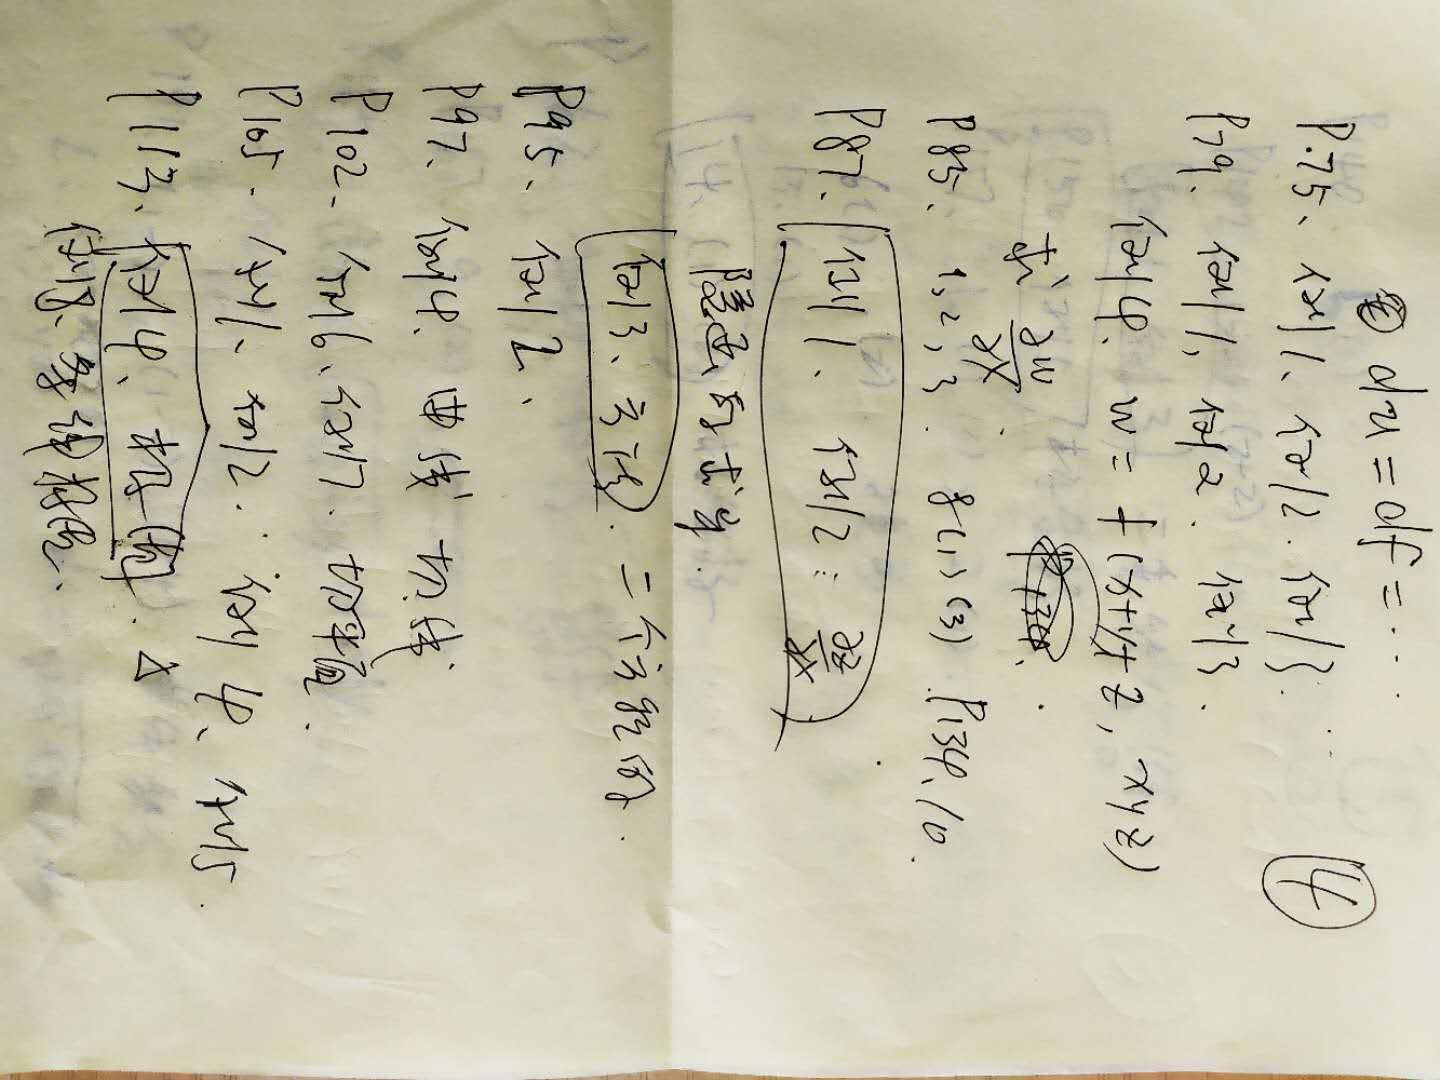 ④
全 du = df = ...
P.75、例1、例2. 例3.
P79. 例1、例2. 例3.
例4. w = f(x+y+z, xyz)
求 ∂w/∂x.
P85. 1,2,3. 8(1)(3). P134. 10.
P87. 例1. 例2: ∂z/∂x
隐函数求导.
例3. 方法. 二个方程的.
P95. 例2.
P97. 例4. 曲线 切线.
P102. 例6、例7. 切平面.
P105. 例1、例2. 例4、例5.
P113. 例4. 极值 △
例8. 条件极值.